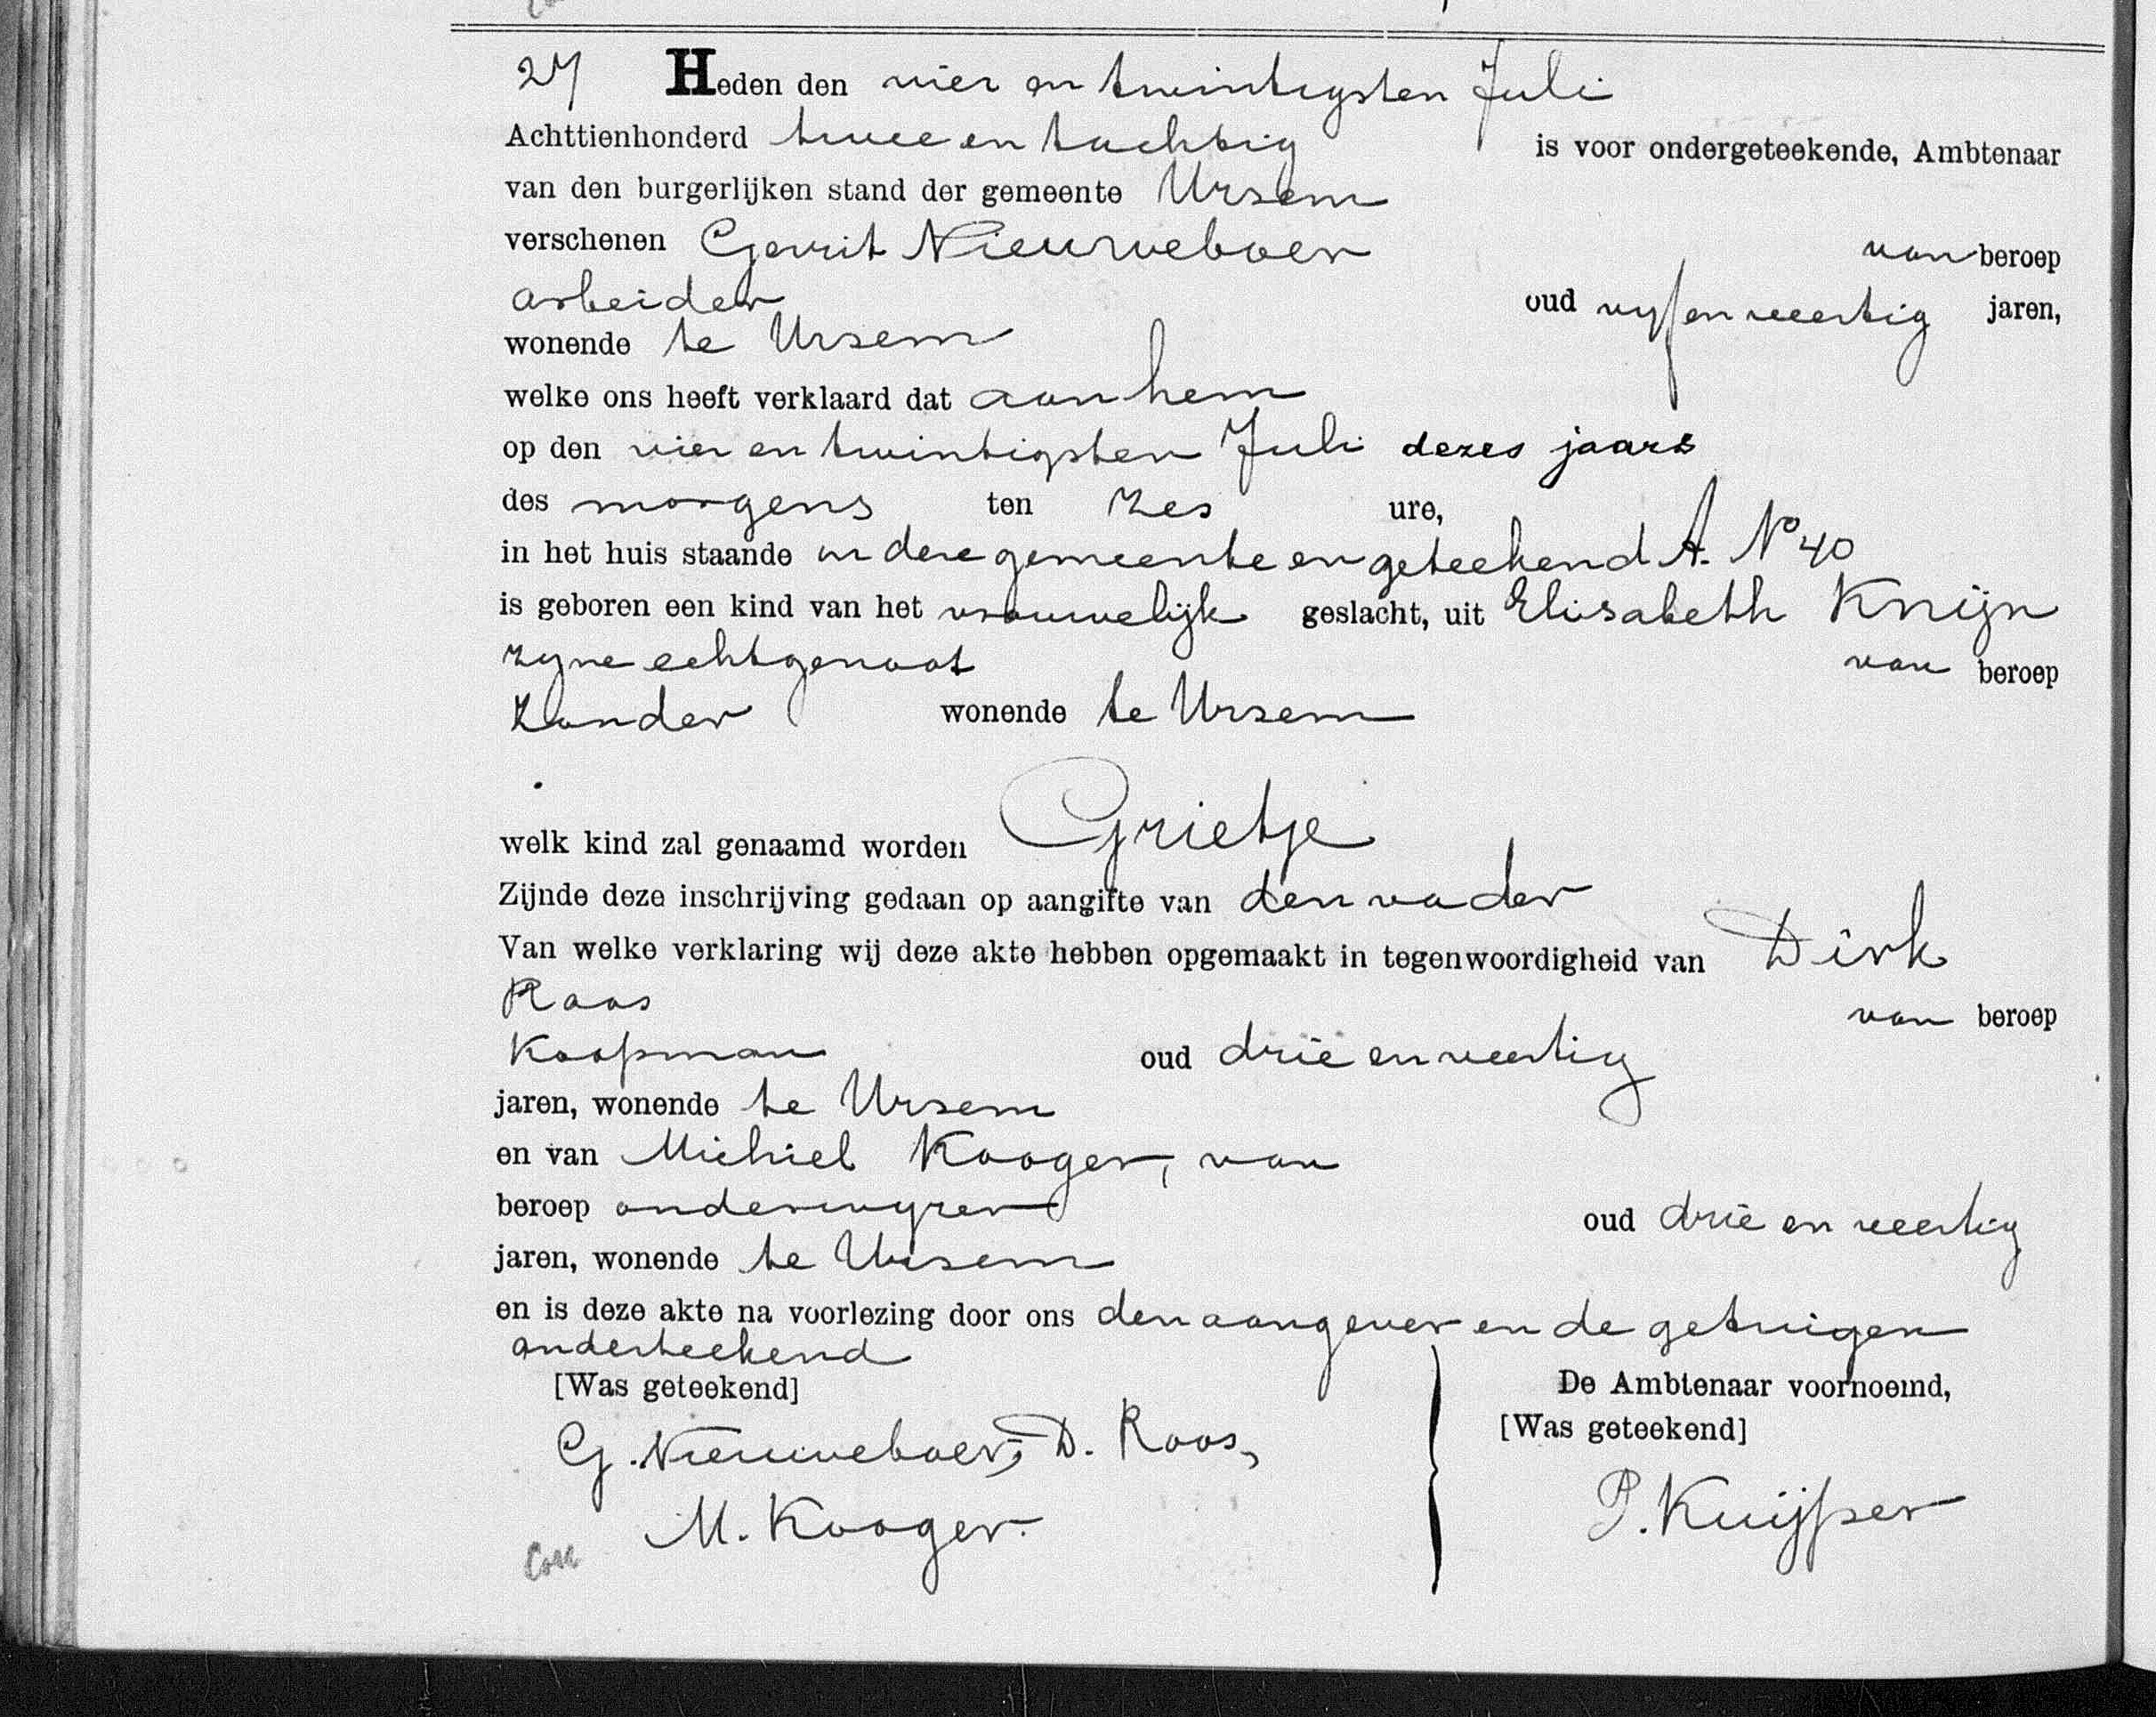 27 Heden den vier en twintigsten Juli
Achttienhonderd twee en tachtig is voor ondergeteekende, Ambtenaar
van den burgerlijken stand der gemeente Ursem
verschenen Gerrit Nieuweboer van beroep
arbeider oud vyf en veertig jaren,
wonende te Ursem
welke ons heeft verklaard dat aan hem
op den vier en twintigsten Juli dezes jaars
des morgens ten zes ure,
in het huis staande in deze gemeente en geteekend A. No 40
is geboren een kind van het vrouwelijk geslacht, uit Elisabeth Knijn
zyne echtgenoot van beroep
zonder wonende te Ursem
welk kind zal genaamd worden Grietje
Zijnde deze inschrijving gedaan op aangifte van den vader
Van welke verklaring wij deze akte hebben opgemaakt in tegenwoordigheid van Dirk
Roos van beroep
Koopman oud drie en veertig
jaren, wonende te Ursem
en van Michiel Kooger, van
beroep onderwyzer oud drie en veertig
jaren, wonende te Ursem
en is deze akte na voorlezing door ons den aangever en de getuigen
onderteekend
[Was geteekend] De Ambtenaar voornoemd,
G. Nieuweboer, D. Roos, [Was geteekend]
M. Kooger. P. Kuijper